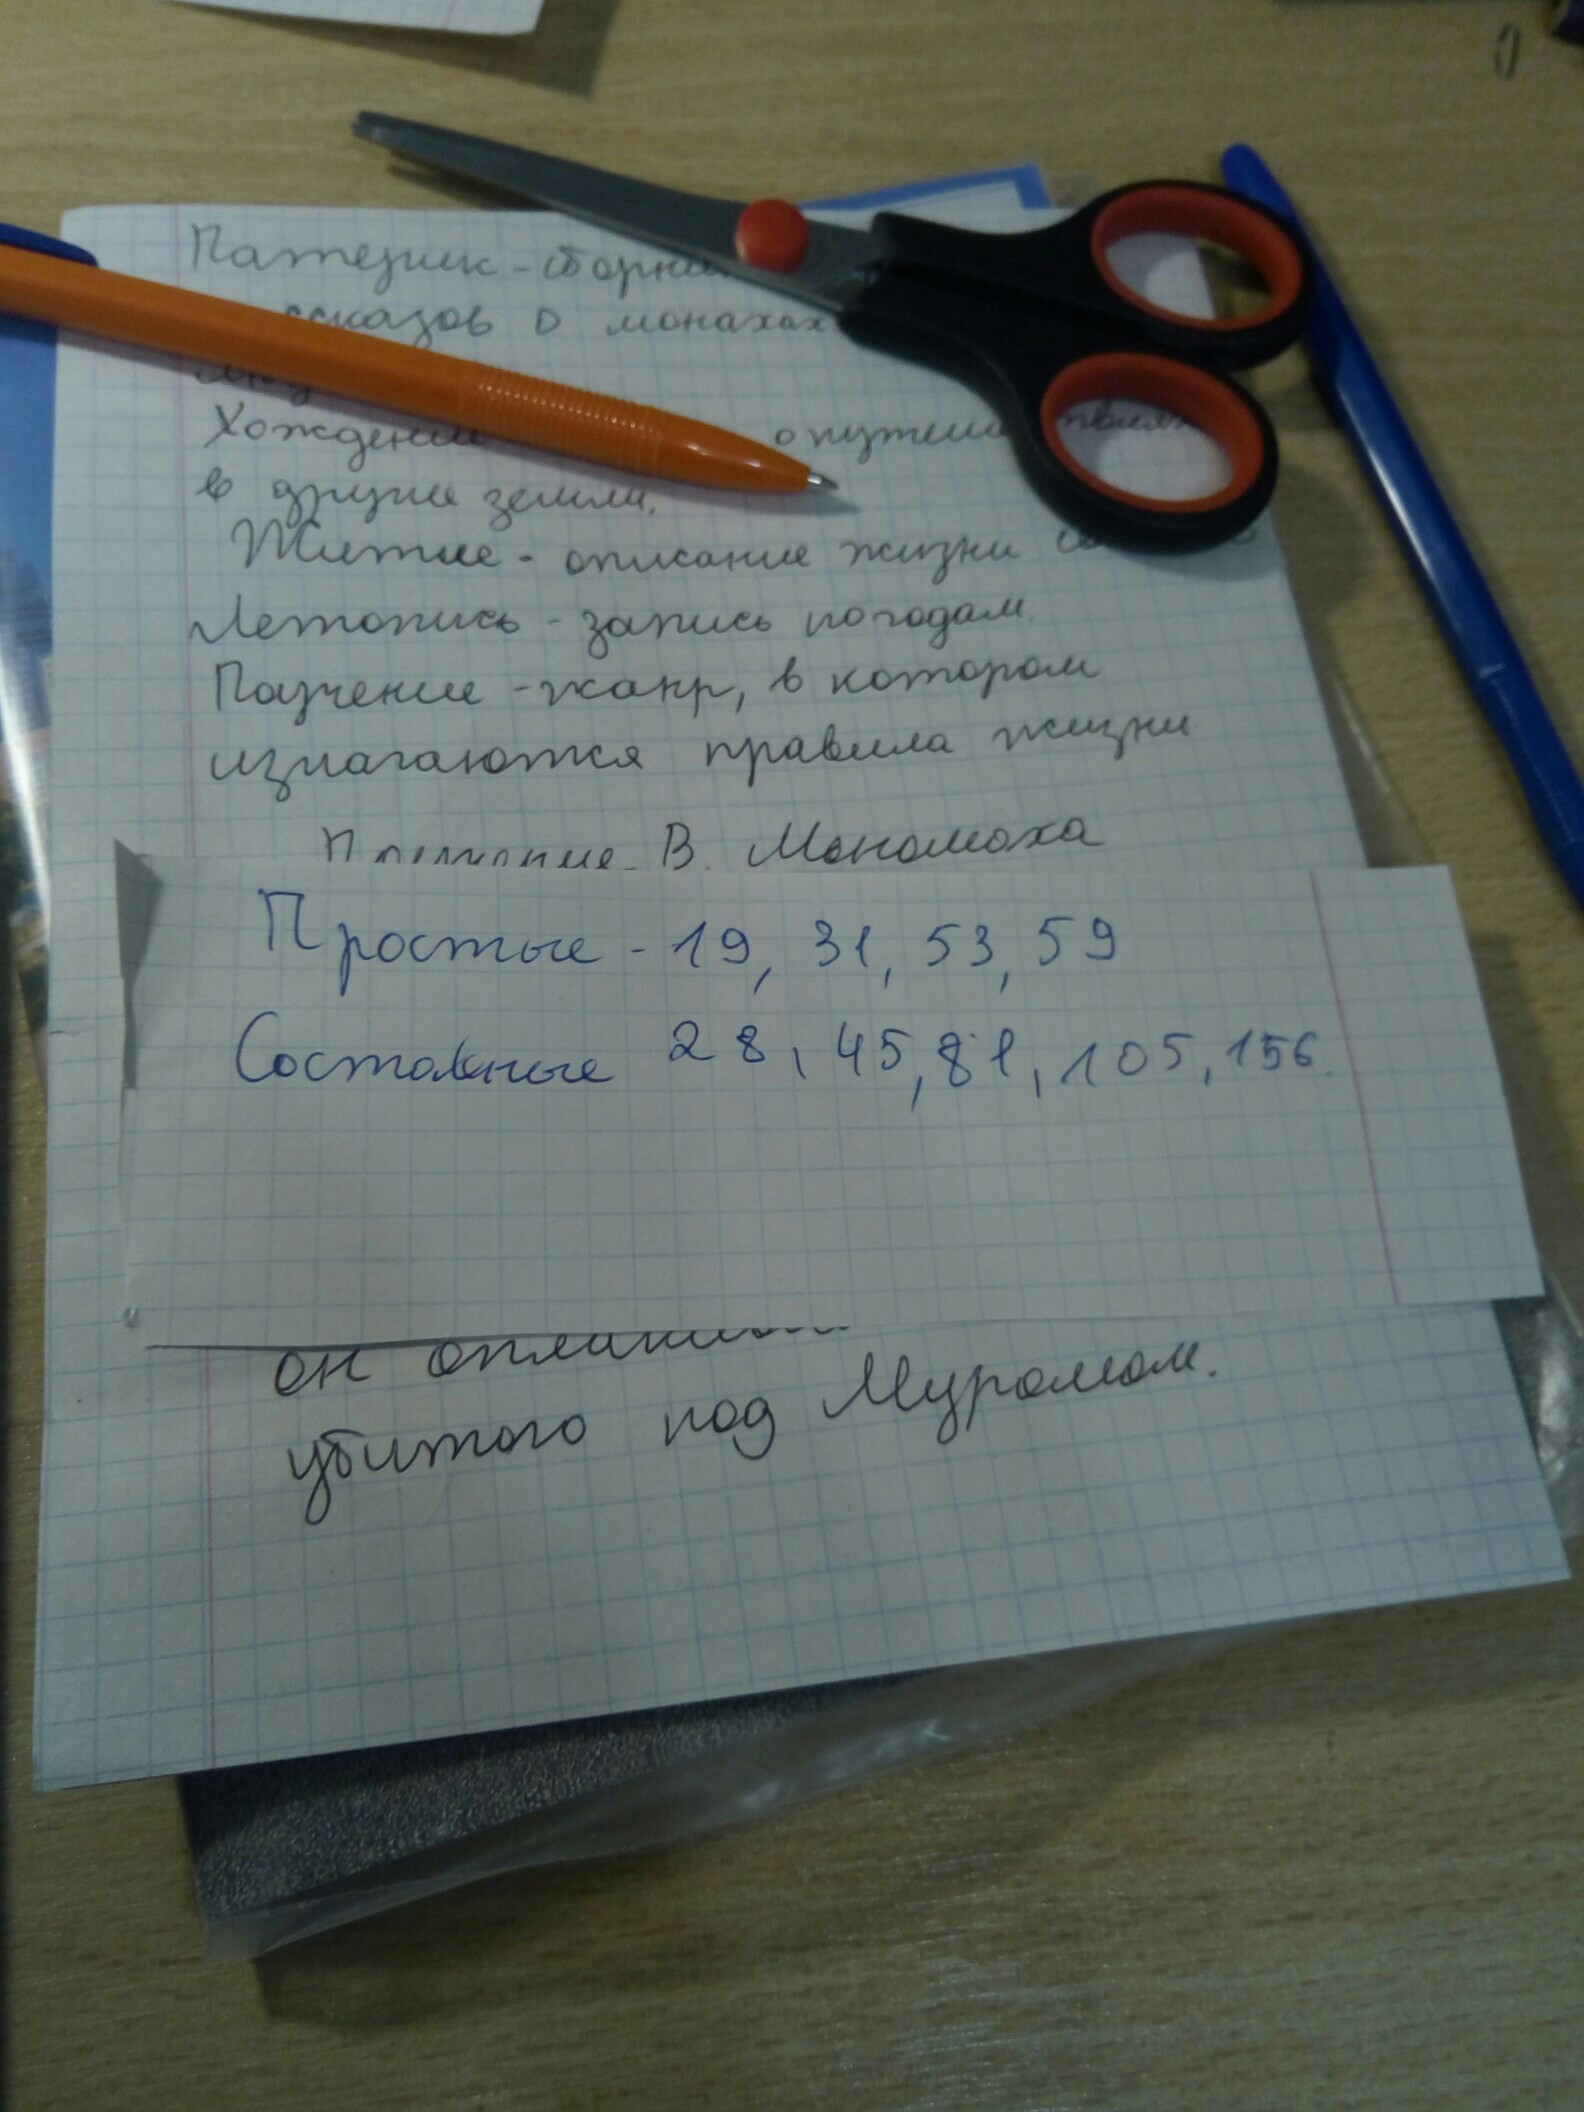 Патерик - сборник
рассказов о монахах
Хождение о путешествиях
в другие земли.
Житие - описание жизни
Летопись - запись по годам.
Поучение - жанр, в котором
излагаются правила жизни
Поучение В. Мономаха
Простые - 19, 31, 53, 59
Составные 28, 45, 81, 105, 156.
он
убитого под Муромом.